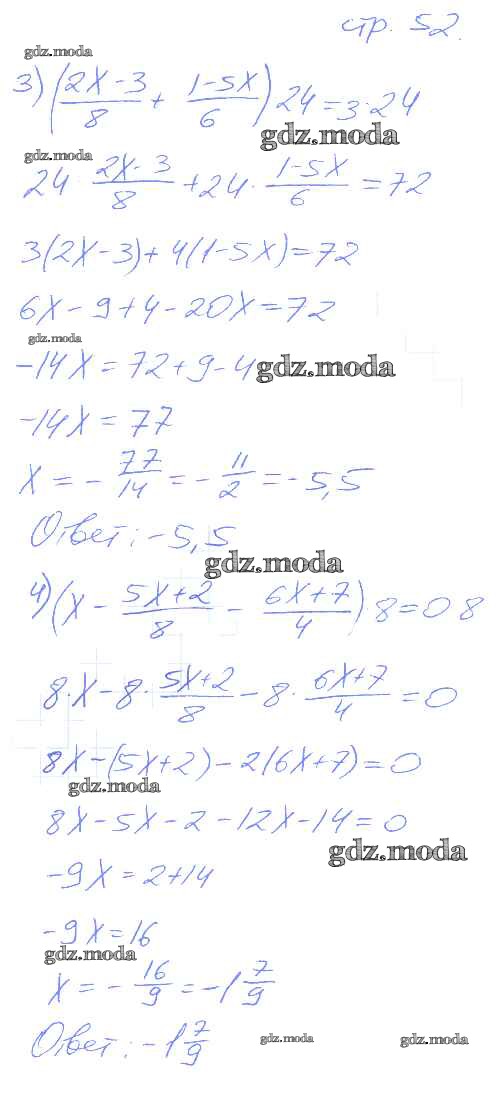 стр. 52.
gdz.moda
3) ( (2x-3)/8 + (1-5x)/6 ) 24 = 3·24
gdz.moda
gdz.moda
24 · (2x-3)/8 + 24 · (1-5x)/6 = 72
3(2x-3)+4(1-5x)=72
6x-9+4-20x=72
gdz.moda
-14x=72+9-4
gdz.moda
-14x=77
x = - 77/14 = - 11/2 = -5,5
Ответ: -5,5
gdz.moda
4) ( x - (5x+2)/8 - (6x+7)/4 ) 8 = 0 8
8·x - 8 · (5x+2)/8 - 8 · (6x+7)/4 = 0
8x-(5x+2)-2(6x+7)=0
gdz.moda
8x-5x-2-12x-14=0
gdz.moda
-9x=2+14
-9x=16
gdz.moda
x = - 16/9 = -1 7/9
Ответ: -1 7/9
gdz.moda
gdz.moda